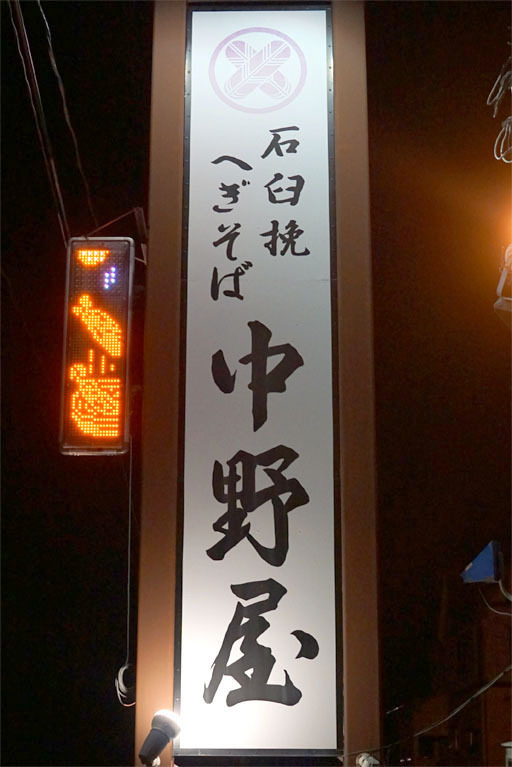 石臼挽
へぎそば
中野屋